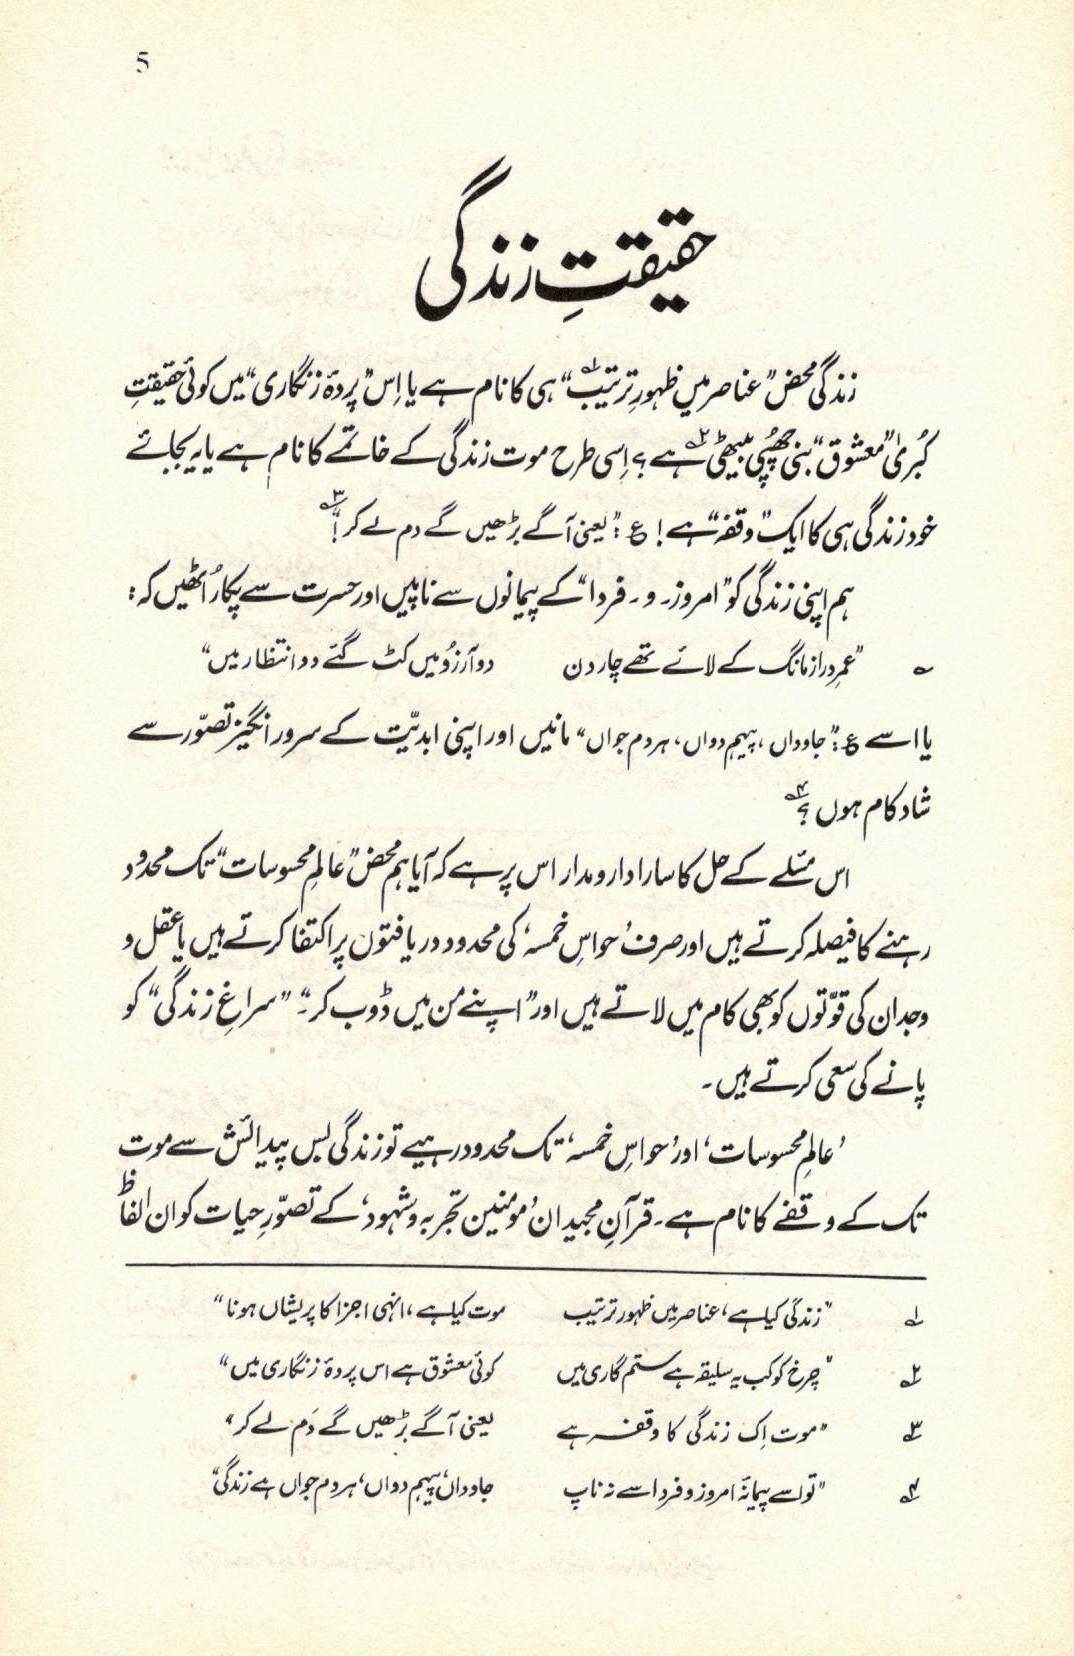 5
حقیقتِ زندگی
زندگی محض ”عناصر میں ظہورِ ترتیب۱“ ہی کا نام ہے یا اِس ”پردۂ زنگاری“ میں کوئی حقیقتِ
کُبریٰ ”معشوق“ بنی چھُپی بیٹھی۲ ہے؟ اِسی طرح موت زندگی کے خاتمے کا نام ہے یا یہ بجائے
خود زندگی ہی کا ایک ”وقفہ“ ہے! ع: ”یعنی آگے بڑھیں گے دم لے کر!“۳
ہم اپنی زندگی کو ”امروز۔ و۔ فردا“ کے پیمانوں سے ناپیں اور حسرت سے پکار اُٹھیں کہ:
؎ ”عمرِ دراز مانگ کے لائے تھے چار دن دو آرزُو میں کٹ گئے دو انتظار میں“
یا اسے ع: ”جاوداں، پیہم دواں، ہر دم جواں“ مانیں اور اپنی ابدیّت کے سرور انگیز تصوّر سے
شاد کام ہوں؟۴
اس مسئلے کے حل کا سارا دارومدار اس پر ہے کہ آیا ہم محض ”عالمِ محسوسات“ تک محدود
رہنے کا فیصلہ کرتے ہیں اور صرف ’حواسِ خمسہ‘ کی محدود دریافتوں پر اکتفا کرتے ہیں یا عقل و
وجدان کی قوّتوں کو بھی کام میں لاتے ہیں اور ”اپنے من میں ڈوب کر۔“ ”سراغِ زندگی“ کو
پانے کی سعی کرتے ہیں۔
’عالمِ محسوسات‘ اور ’حواسِ خمسہ‘ تک محدود رہیے تو زندگی بس پیدائش سے موت
تک کے وقفے کا نام ہے۔ قرآنِ مجید ان ’مومنین تجربہ و شہود‘ کے تصوّرِ حیات کو ان الفاظ
۱ ”زندگی کیا ہے، عناصر میں ظہور ترتیب موت کیا ہے، انہی اجزا کا پریشاں ہونا“
۲ ”چرخ کو کب یہ سلیقہ ہے ستم گاری میں کوئی معشوق ہے اس پردۂ زنگاری میں“
۳ ”موت اِک زندگی کا وقفہ ہے یعنی آگے بڑھیں گے دَم لے کر“
۴ ”تو اسے پیمانۂ امروز و فردا سے نہ ناپ جاوداں، پیہم دواں، ہر دم جواں ہے زندگی“